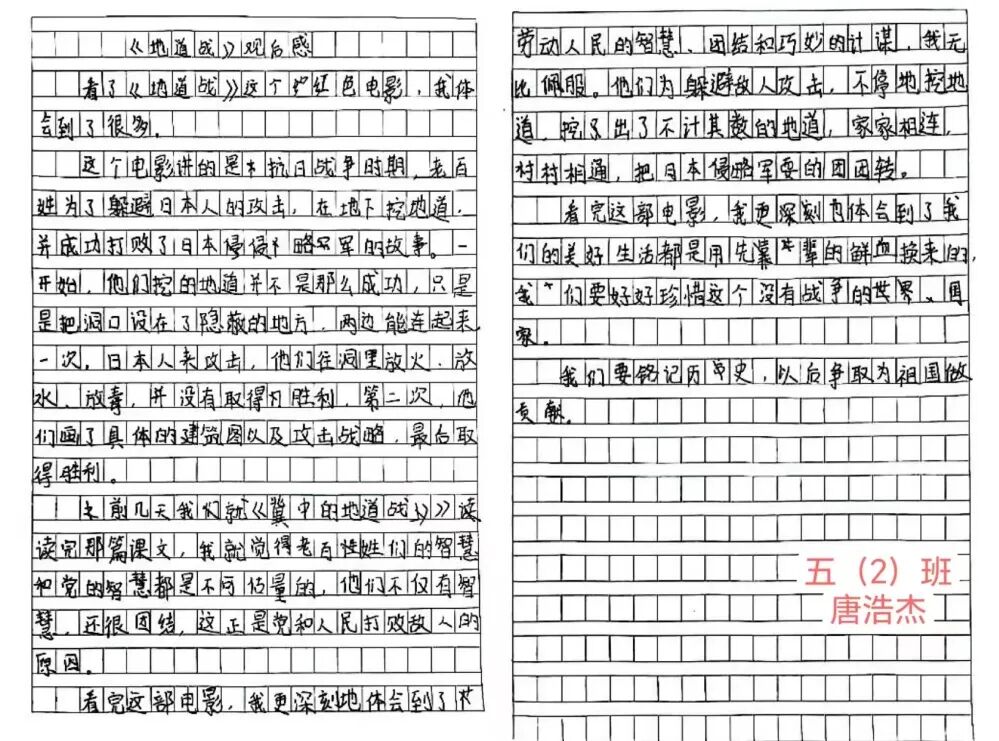 《地道战》观后感
看了《地道战》这个红色电影，我体
会到了很多。
这个电影讲的是抗日战争时期，老百
姓为了躲避日本人的攻击，在地下挖地道，
并成功打败了日本侵侵略军的故事。一
开始，他们挖的地道并不是那么成功，只是
是把洞口设在了隐蔽的地方，两边能连起来，
一次，日本人来攻击，他们往洞里放火、放
水、放毒，并没有取得胜利，第二次，他
们画了具体的建筑图以及攻击战略，最后取
得胜利。
前几天我们就《冀中的地道战》读
读完那篇课文，我就觉得老百姓们的智慧
和党的智慧都是不可估量的，他们不仅有智
慧，还很团结，这正是党和人民打败敌人的
原因。
看完这部电影，我更深刻地体会到了
劳动人民的智慧、团结和巧妙的计谋，我无
比佩服。他们为躲避敌人攻击，不停地挖地
道，挖出了不计其数的地道，家家相连，
村村相通，把日本侵略军耍的团团转。
看完这部电影，我更深刻体会到了我
们的美好生活都是用先辈的鲜血换来的，
我们要好好珍惜这个没有战争的世界、国
家。
我们要铭记历史，以后争取为祖国做
贡献。
五（2）班
唐浩杰